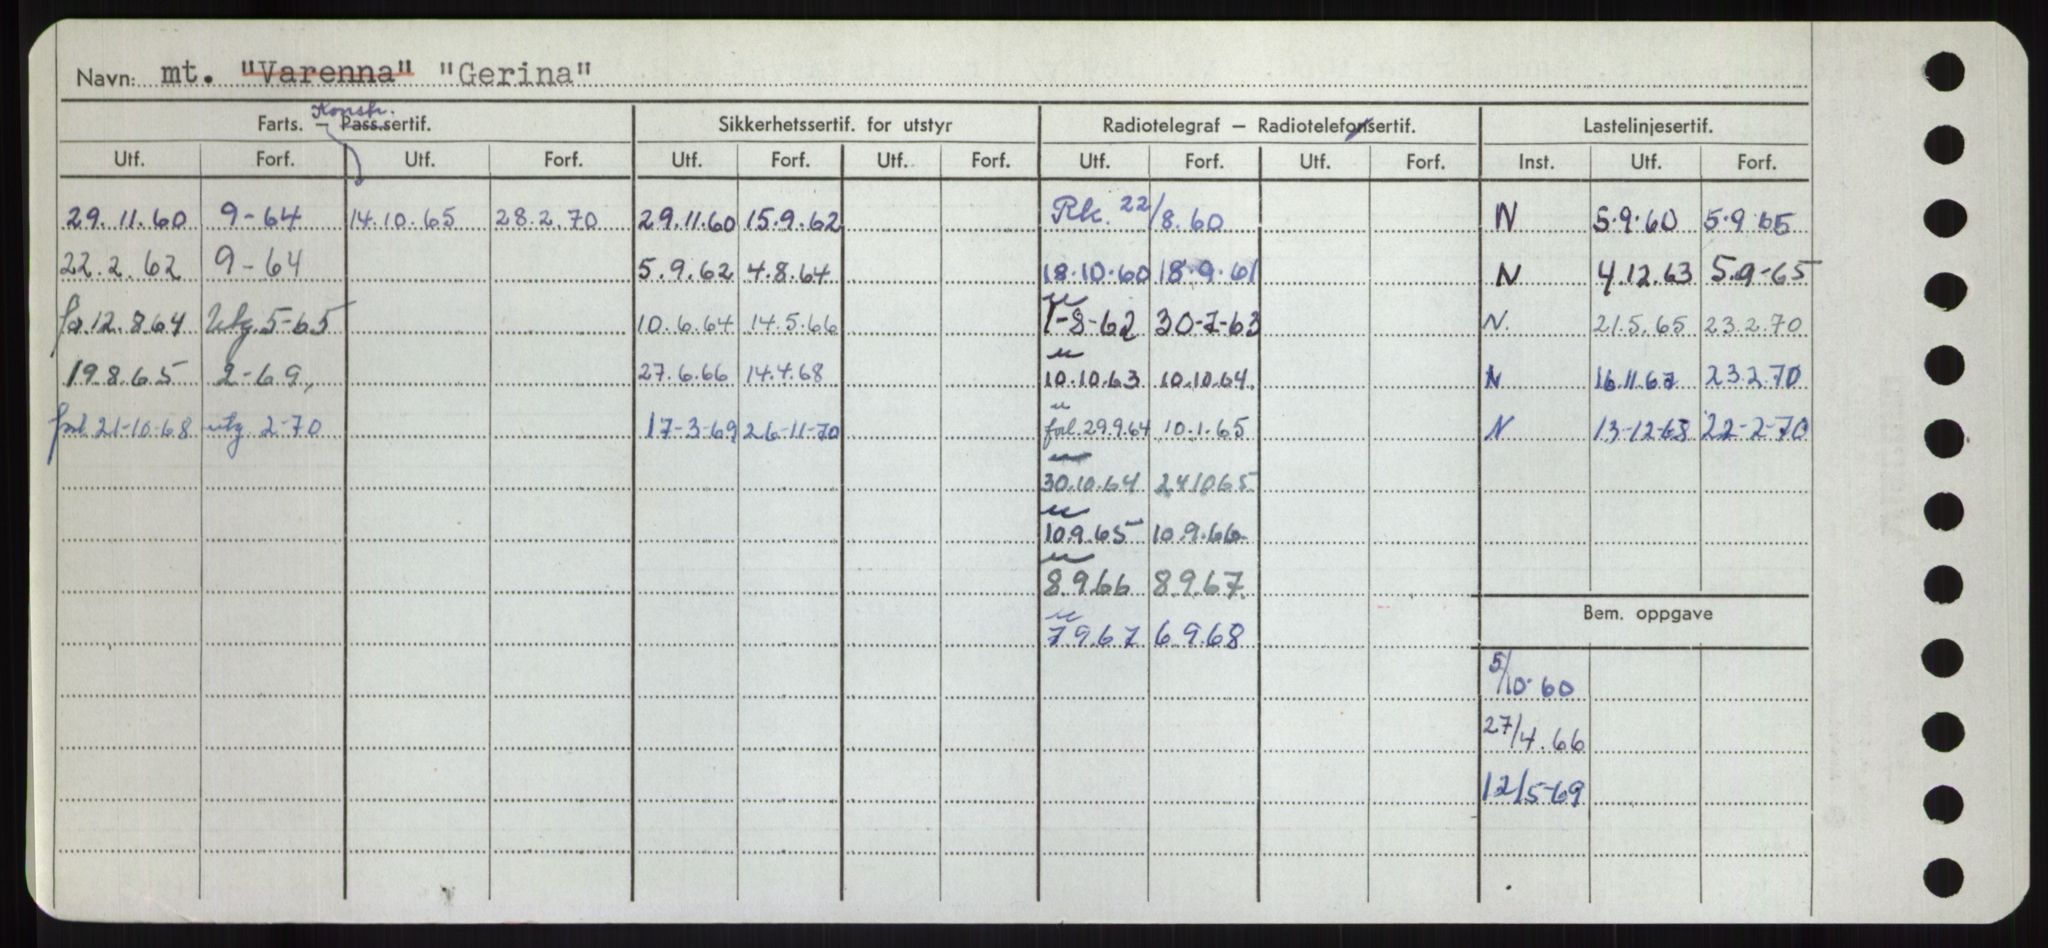 Navn: mt. "Varenna" "Gerina"
Konstr.
Farts. – Pass.sertif. Sikkerhetssertif. for utstyr Radiotelegraf – Radiotelefonsertif. Lastelinjesertif.
Utf. Forf. Utf. Forf. Utf. Forf. Utf. Forf. Utf. Forf. Utf. Forf. Inst. Utf. Forf.
29.11.60 9-64 14.10.65 28.2.70 29.11.60 15.9.62 Rk. 22/8.60 N 5.9.60 5.9.65
22.2.62 9-64 5.9.62 4.8.64 18.10.60 18.9.61 N 4.12.63 5.9-65
fo.12.864 Utg.5-65 10.6.64 14.5.66 1-8-62 30-7-63 N. 21.5.65 23.2.70
19.8.65 2-69, 27.6.66 14.4.68 10.10.63 10.10.64. N 16.11.67 23.2.70
forl 21-10-68 utg. 2-70 17-3-69 26-11-70 forl.29.9.64 10.1.65 N 13-12-68 22-2-70
30.10.64 24.10.65
10.9.65 10.9.66
8.9.66 8.9.67.
7.9.67 6.9.68
Bem. oppgave
5/10-60
27/4.66
12/5-69